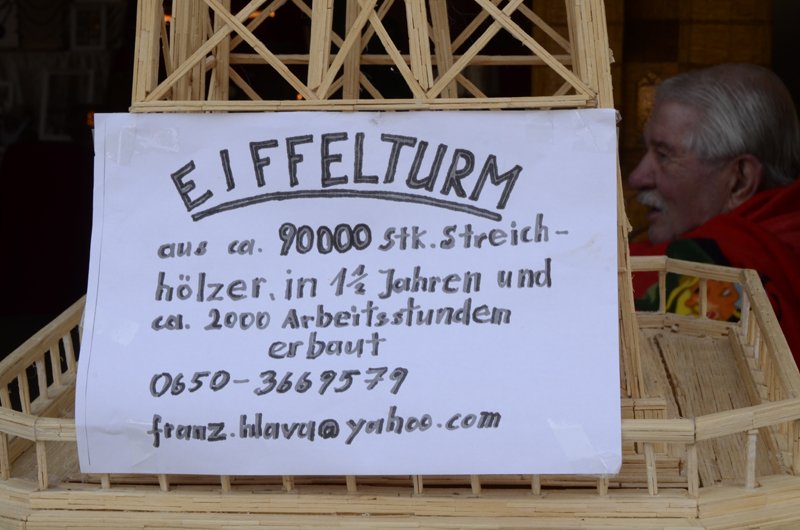 EIFFELTURM
aus ca. 90000 Stk. Streich-
hölzer, in 1½ Jahren und
ca. 2000 Arbeitsstunden
erbaut
0650-3669579
franz.hlava@yahoo.com